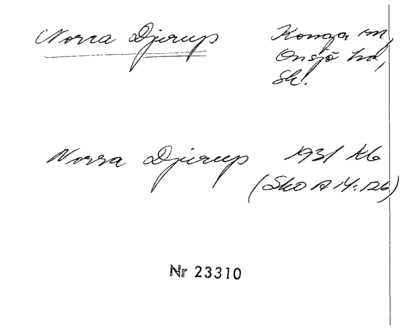 Norra Djurup Konga sn,
Onsjö hd,
Sk.
Norra Djurup 1931 kb
(SkO A 14:126)
Nr 23310